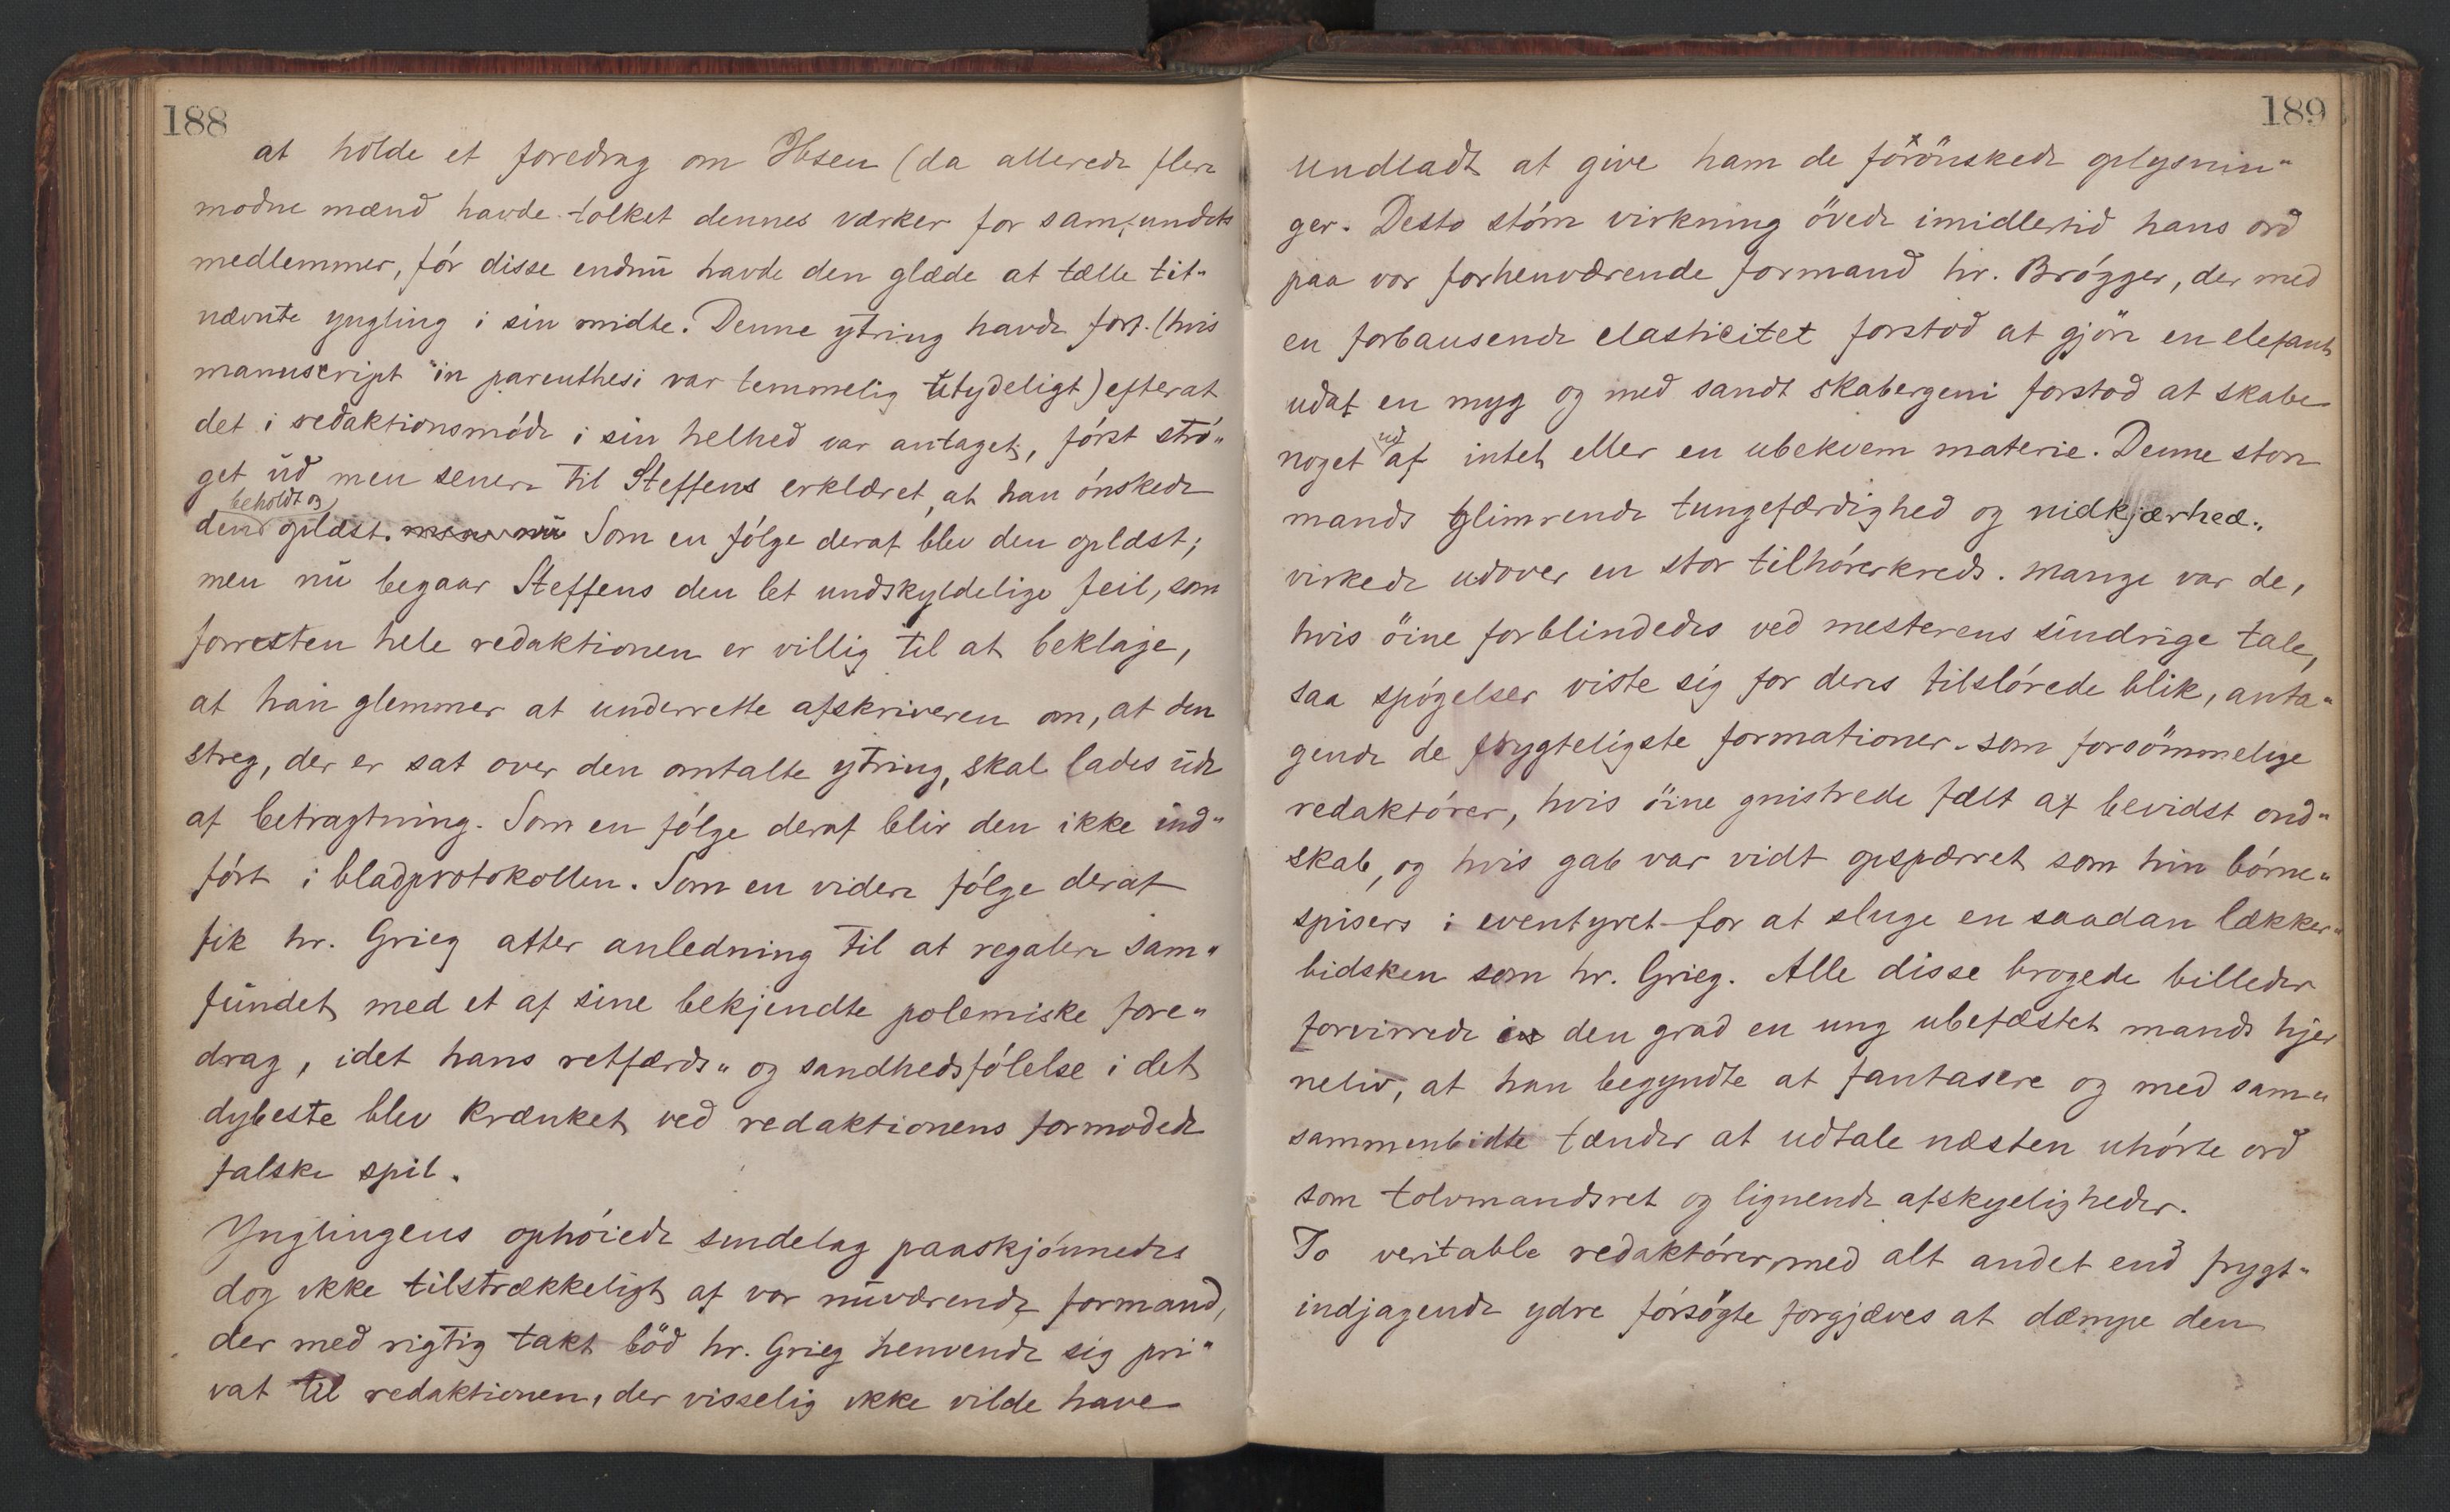 188
at holde et foredrag om Ibsen (da allerede flere
modne mænd havde tolket dennes værker for samfundets
medlemmer, før disse endnu havde den glæde at tælle tit-
nævnte yngling i sin midte. Denne ytring havde forf. (hvis
manuscript in parenthesi var temmelig utydeligt) efterat
det i redaktionsmøde i sin helhed var antaget, først strø-
get ud men senere til Steffens erklæret, at han ønskede
den beholdt og oplæst. men nu Som en følge deraf blev den oplæst;
men nu begaar Steffens den let undskyldelige feil, som
forresten hele redaktionen er villig til at beklage,
at han glemmer at underrette afskriveren om, at den
streg, der er sat over den omtalte ytring, skal lades ude
af betragtning. Som en følge deraf blir den ikke ind-
ført i bladprotokollen. Som en videre følge deraf
fik hr. Grieg atter anledning til at regalere sam-
fundet med et af sine bekjendte polemiske fore-
drag, idet hans retfærds- og sandhedsfølelse i det
dybeste blev krænket ved redaktionens formodede
falske spil.
Ynglingens ophøiede sindelag paaskjønnedes
dog ikke tilstrækkeligt af vor nuværende formand,
der med rigtig takt bød hr. Grieg henvende sig pri-
vat til redaktionen, der visselig ikke vilde have
189
undladt at give ham de førønskede oplysnin-
ger. Desto større virkning øvede imidlertid hans ord
paa vor forhenværende formand hr. Brøgger, der med
en forbausende elasticitet forstod at gjøre en elefant
udaf en myg og med sandt skabergeni forstod at skabe
noget ud af intet eller en ubekvem materie. Denne store
mands glimrende tungefærdighed og nidkjærhed
virkede udover en stor tilhørerkreds. Mange var de,
hvis øine forblindedes ved mesterens sindrige tale,
saa spøgelser viste sig for deres tilslørede blik, anta-
gende de frygteligste formationer som forsømmelige
redaktører, hvis øine gnistrede fælt af bevidst ond-
skab, og hvis gab var vidt opspærret som hin børne-
spisers i eventyret for at sluge en saadan lækker-
bidsken som hr. Grieg. Alle disse brogede billeder
forvirrede i den grad en ung ubefæstet mands hjer
neliv, at han begyndte at fantasere og med sam-
sammenbidte tænder at udtale næsten uhørte ord
som tolvmandsret og lignende afskyeligheder.
To veritable redaktører, med alt andet end frygt-
indjagende ydre forsøgte forgjæves at dæmpe den